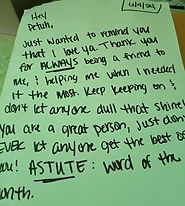 Hey
4/4/21
Petuh,
Just wanted to remind you
that I love ya. Thank you
for ALWAYS being a friend to
me, & helping me when I needed
it the most. Keep keeping on &
don't let anyone dull that shine!
You are a great person, just don't
EVER let anyone get the best of
you! ASTUTE: word of the
month.